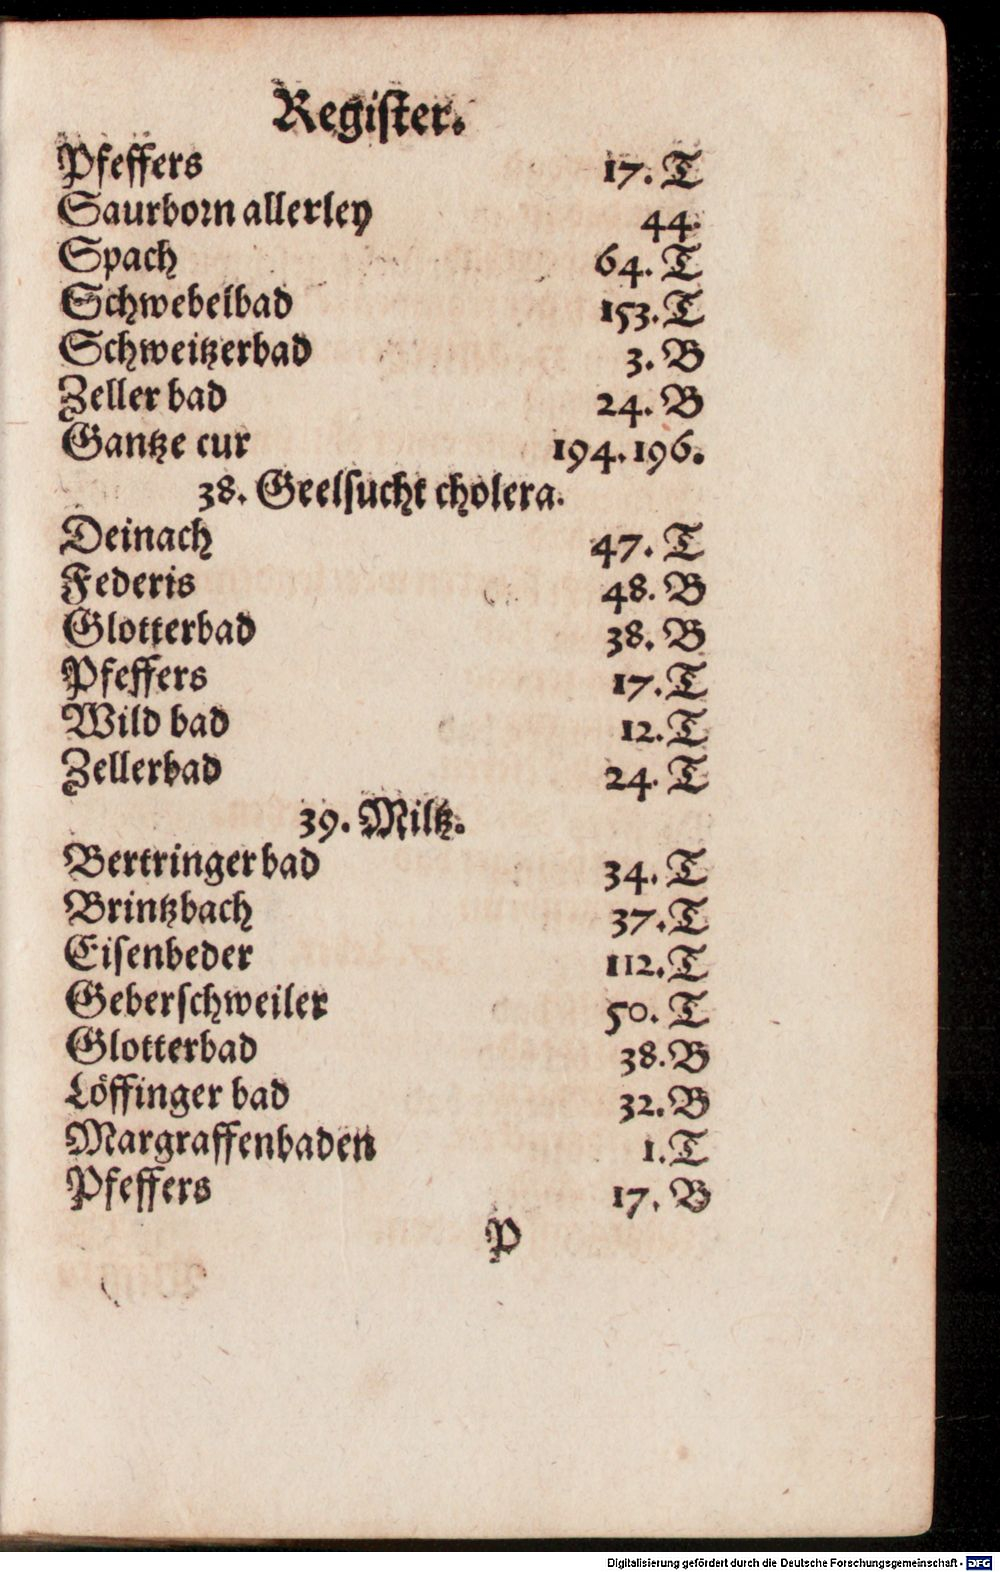 Regiſter.
Pfeffers 17. T
Saurborn allerley 44.
Spach 64. T
Schwebelbad 153. T
Schweitzerbad 3. B
Zeller bad 24. B
Gantze cur 194. 196.
38. Geelſucht cholera.
Deinach 47. T
Federis 48. B
Glotterbad 38. B
Pfeffers 17. T
Wild bad 12. T
Zellerbad 24. T
39. Miltz.
Bertringer bad 34. T
Brintzbach 37. T
Eiſenbeder 112. T
Geberſchweiler 50. T
Glotterbad 38. B
Löffinger bad 32. B
Margraffenbaden 1. T
Pfeffers 17. B
P
Digitalisierung gefördert durch die Deutsche Forschungsgemeinschaft - DFG